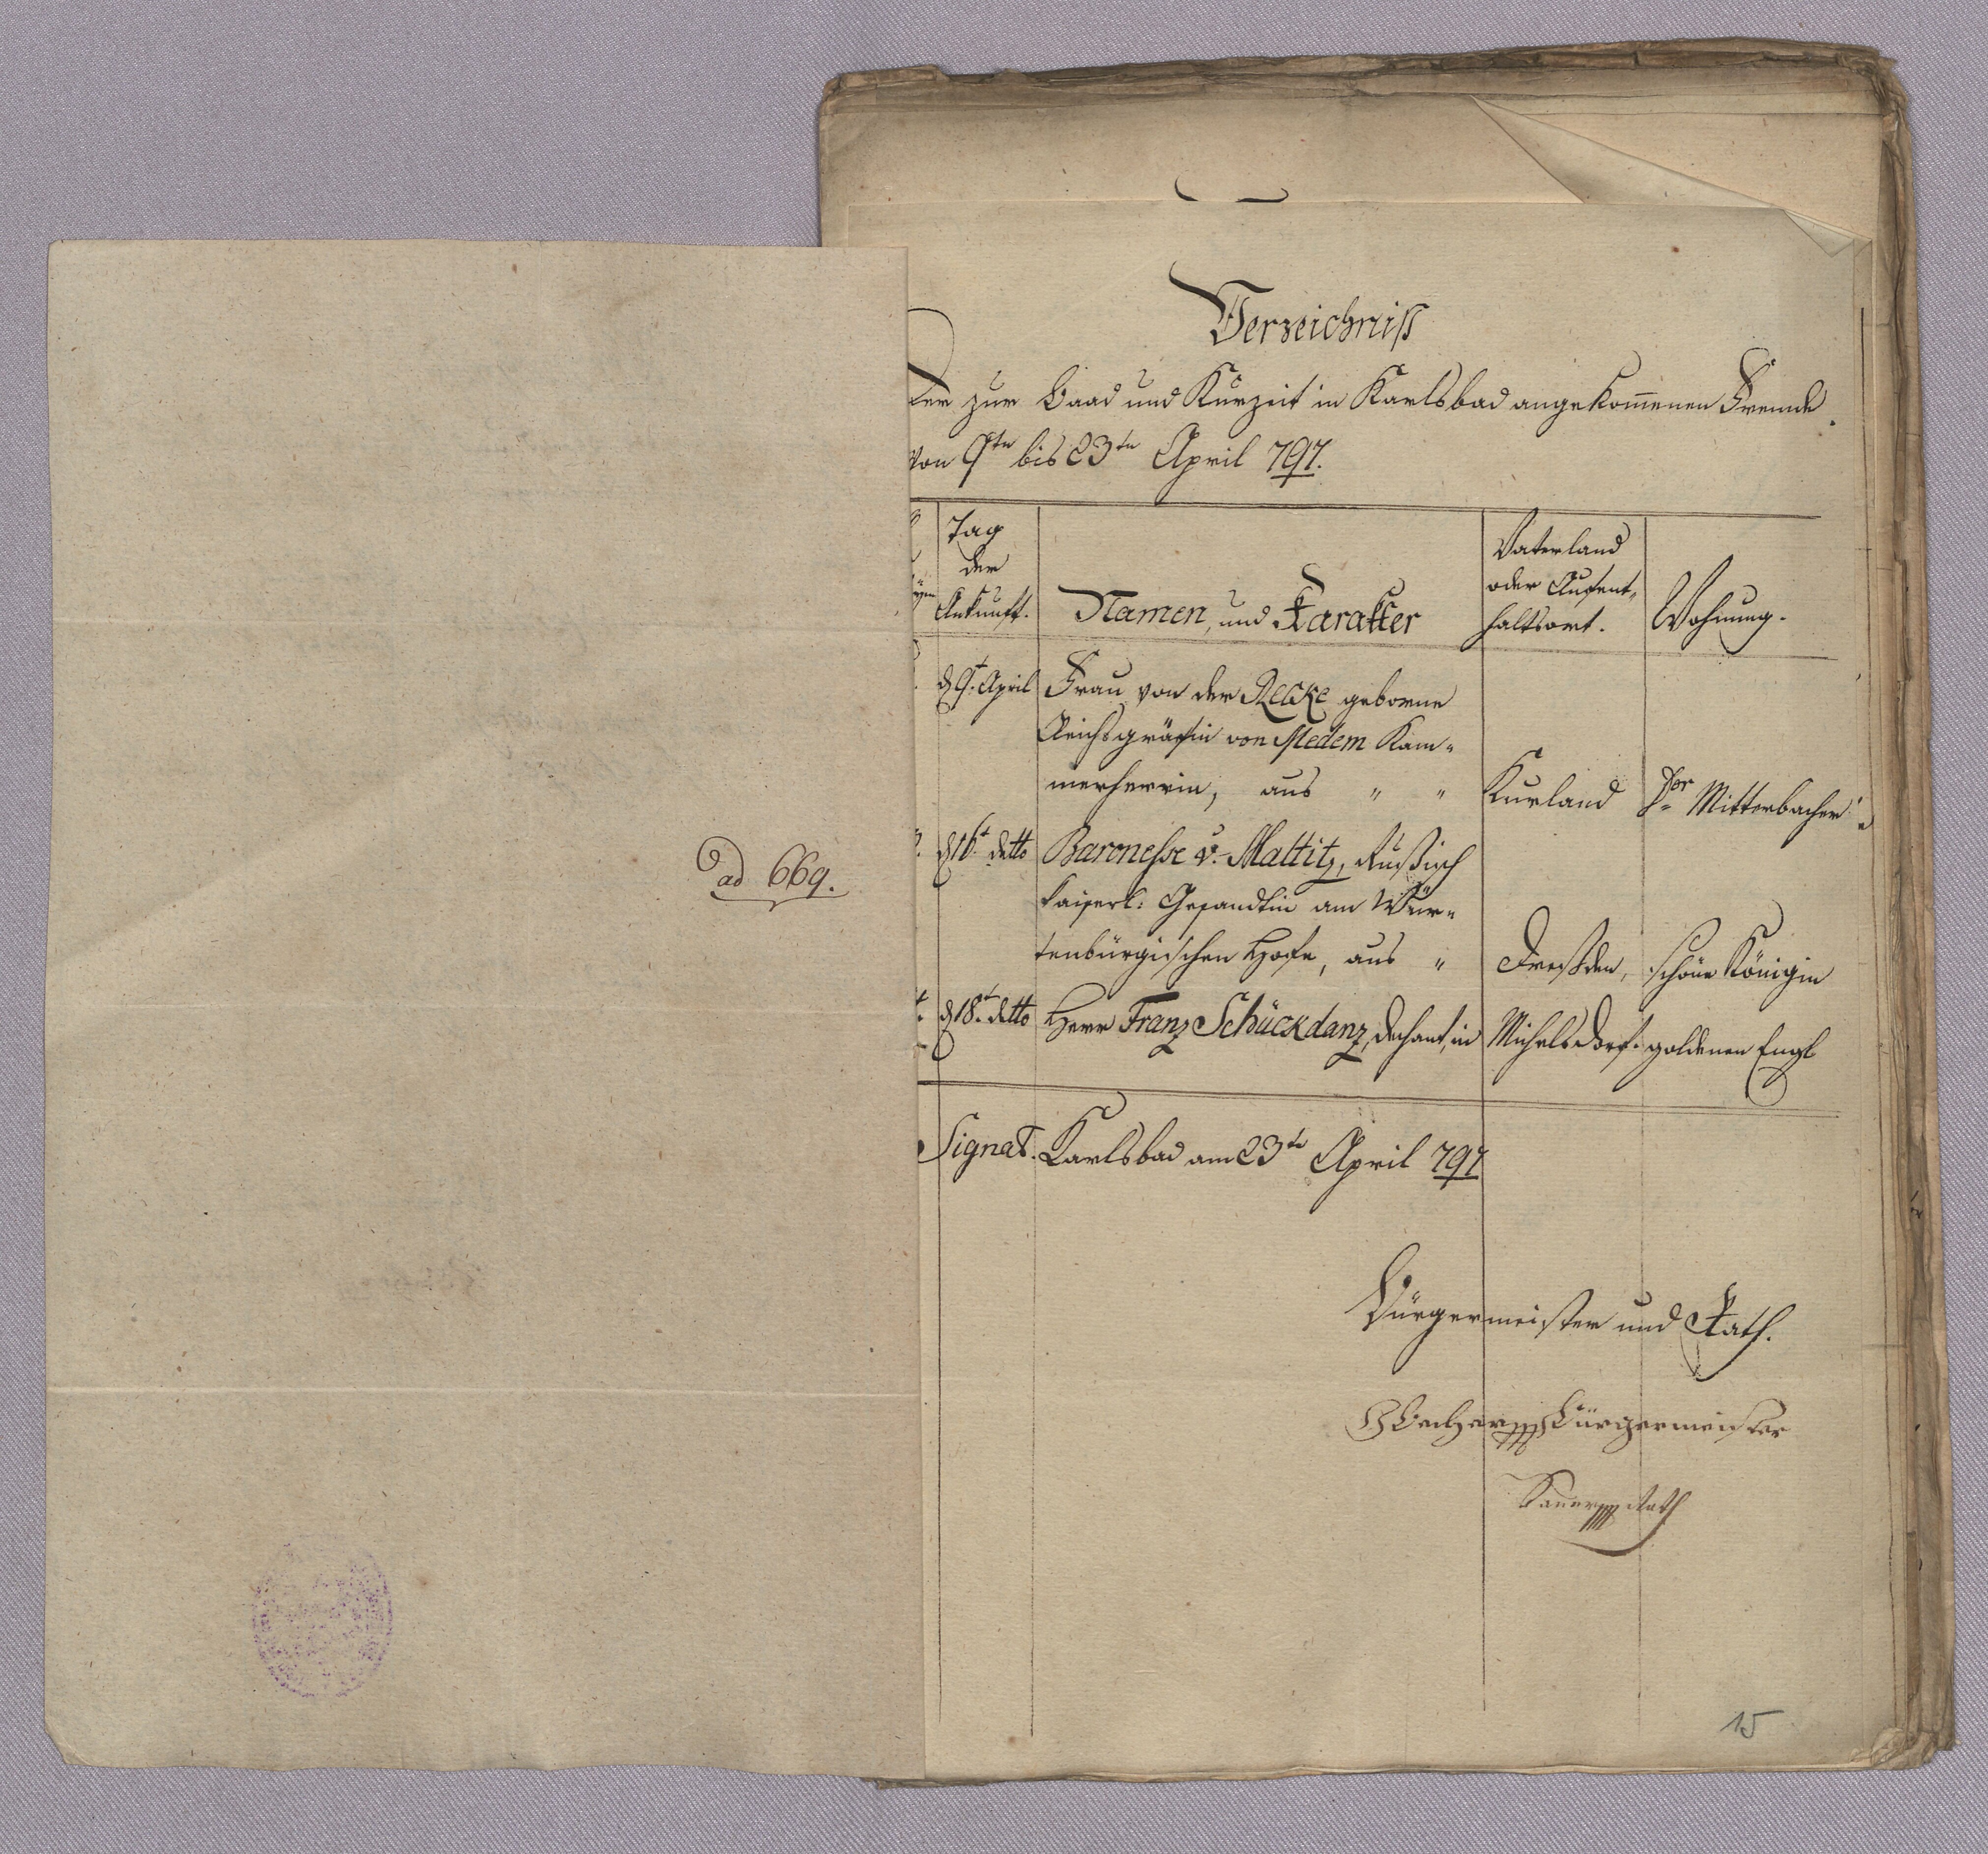 ad 669.
Verzeichniß
der zur Baad und Kurzeit in Karlsbad angekom̄enen Fremde
von 9tn bis 23tn April 797.
Tag
der
Ankunft.
Namen, und Karakter
Vaterland
oder Aufent-
haltsort.
Wohnung.
d 9t. April Frau von der Recke geborne
Reichsgräfin von Medem Kam-
merherrin, aus " " Kurland Mitterbacher
d 16t. detto Baronesse v. Maltitz, Rußisch
kaiserl: Gesandtin am Wür-
tenbürgischen Hofe, aus " Dreßden, schöne Königin
d 18t. detto Herr Franz Schückdanz, Dechant, in Michelsdorf. goldenen Engl
Signat. Karlsbad am 23tn April 797
Bürgermeister und Rath.
Becher Bürgermeister
Rath
15